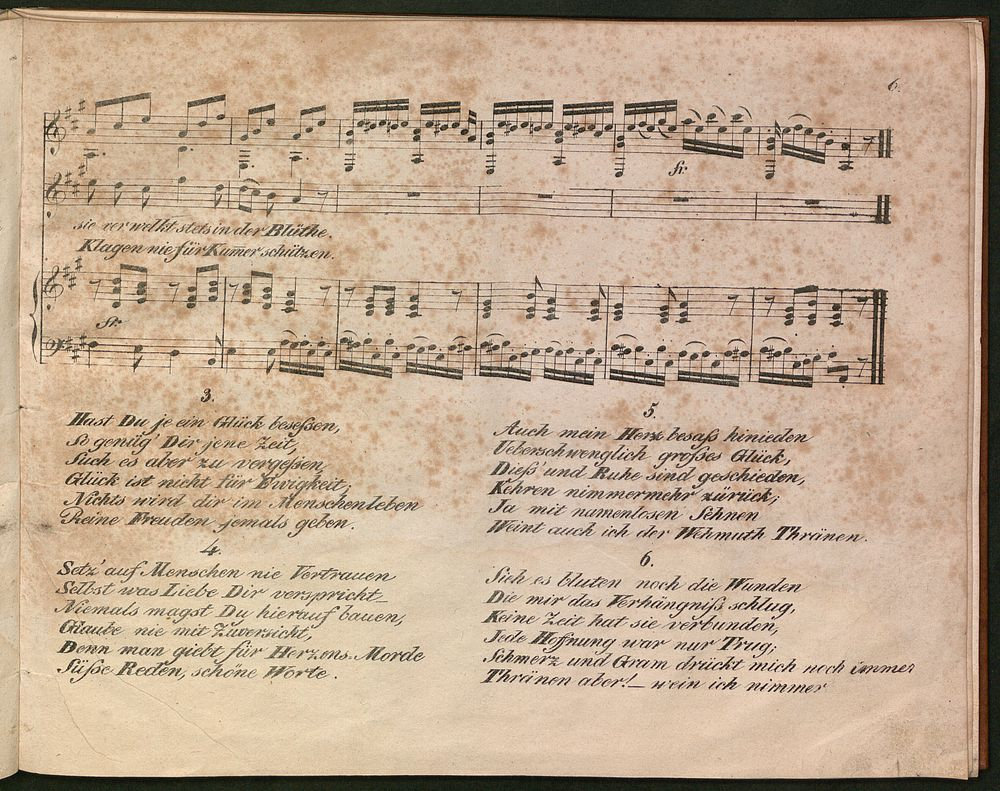 6.
sie verwelkt stets in der Blüthe
Klagen nie für Kum̄er schützen.
3.
Hast Du je ein Glück beseßen,
So genüg' Dir jene Zeit,
Such es aber zu vergeßen,
Glück ist nicht für Ewigkeit;
Nichts wird dir im Menschenleben
Reine Freuden jemals geben.
4.
Setz' auf Menschen nie Vertrauen
Selbst was Liebe Dir verspricht_
Niemals magst Du hierauf bauen,
Glaube nie mit Zuversicht,
Denn man giebt für Herzens-Morde
Süsse Reden, schöne Worte.
5.
Auch mein Herz besaß hinieden
Ueberschwenglich großes Glück,
Dieß' und Ruhe sind geschieden,
Kehren nimmermehr zurück;
Ja mit namenlosen Sehnen
Weint auch ich der Wehmuth Thränen.
6.
Sieh es bluten noch die Wunden
Die mir das Verhängniß schlug,
Keine Zeit hat sie verbunden,
Jede Hoffnung war nur Trug;
Schmerz und Gram drückt mich noch immer
Thränen aber!_ wein ich nimmer